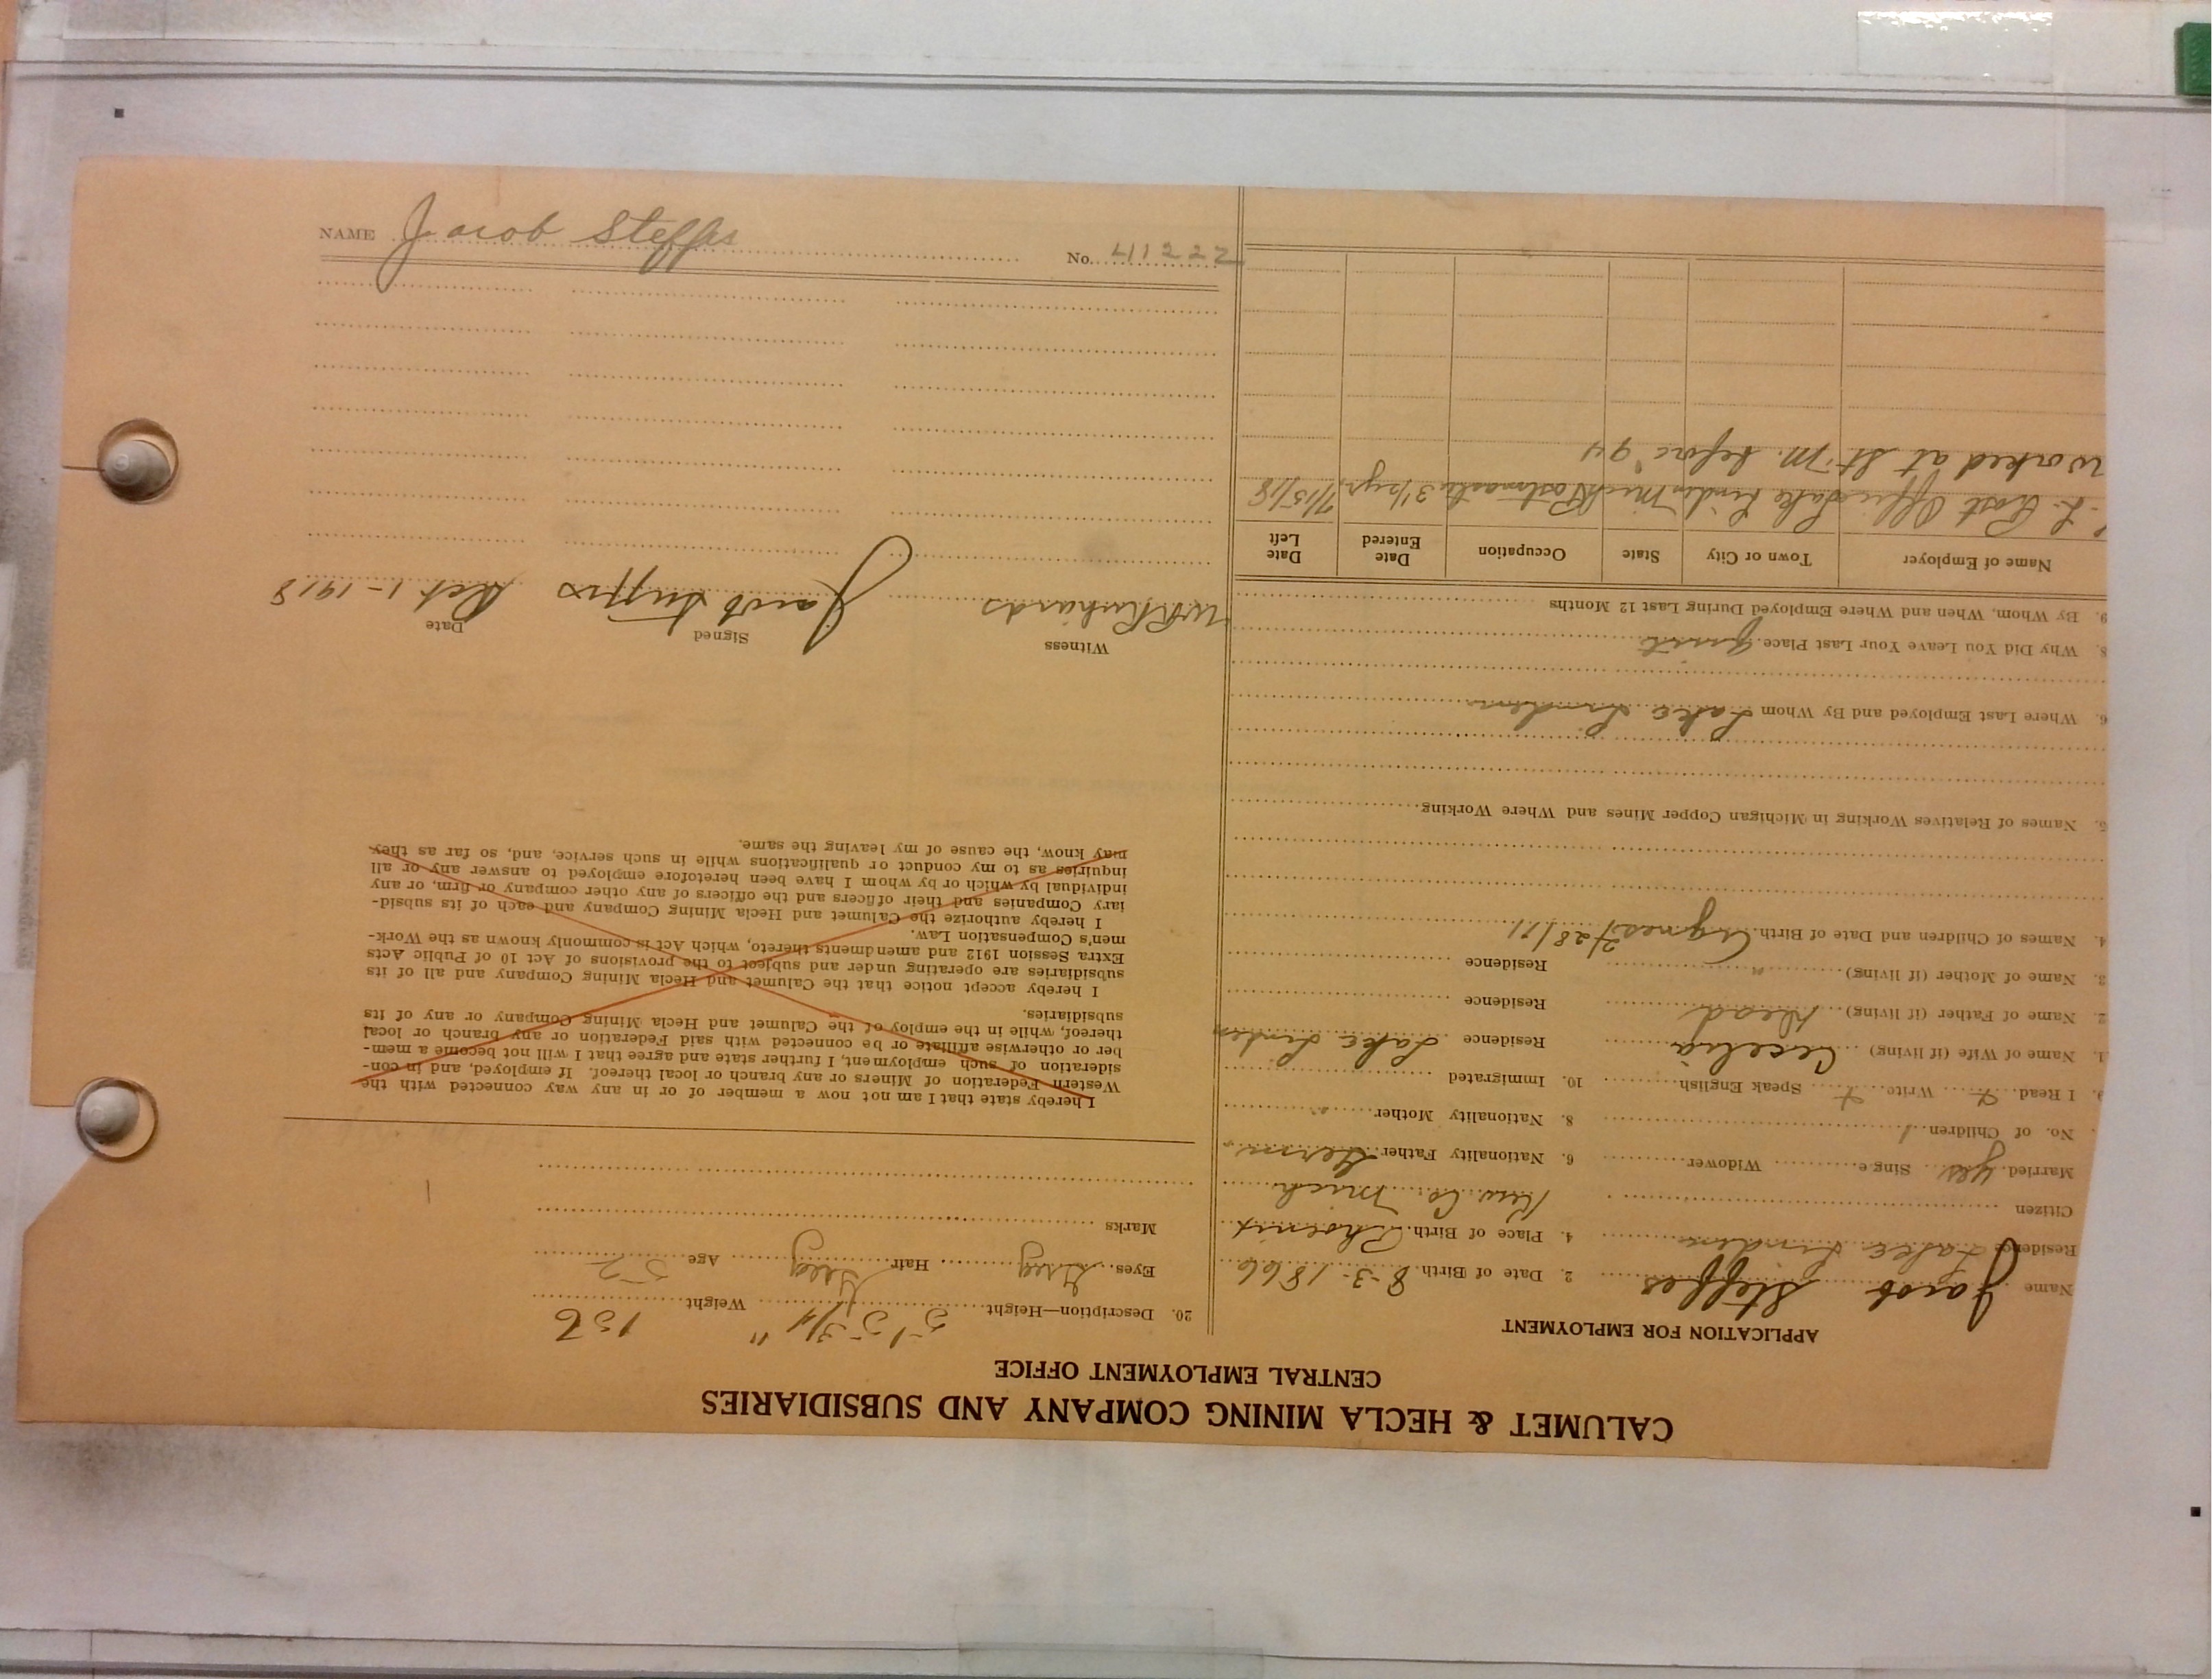 CALUMET & HECLA MINING COMPANY AND SUBSIDIARIES
CENTRAL EMPLOYMENT OFFICE
APPLICATION FOR EMPLOYMENT
Name Jacob Steffes 2. Date of Birth 8-3-1866
Residence Lake Linden 4. Place of Birth Phoenix
Citizen Kew. Co. Mich
Married yes Single Widower 6. Nationality Father Germ.
No. of Children 1 8. Nationality Mother "
9. I Read + Write + Speak English 10. Immigrated
1. Name of Wife (if living) Cecelia Residence Lake Linden
2. Name of Father (if living) Dead Residence
3. Name of Mother (if living) " Residence
4. Names of Children and Date of Birth. Agnes 2/28/11
5. Names of Relatives Working in Michigan Copper Mines and Where Working
6. Where Last Employed and By Whom Lake Linden
8. Why Did You Leave Your Last Place. quit
9. By Whom, When and Where Employed During Last 12 Months
Name of Employer Town or City State Occupation Date Entered Date Left
L. Post Office Lake Linden Mich Postmaster 3 1/2 yr. 7/15/18
Worked at St. M. before 94
20. Description—Height 5' 5-3/4" Weight 156
Eyes Grey Hair Grey Age 52
Marks
I hereby state that I am not now a member of or in any way connected with the
Western Federation of Miners or any branch or local thereof. If employed, and in con-
sideration of such employment, I further state and agree that I will not become a mem-
ber or otherwise affiliate or be connected with said Federation or any branch or local
thereof, while in the employ of the Calumet and Hecla Mining Company or any of its
subsidiaries.
I hereby accept notice that the Calumet and Hecla Mining Company and all of its
subsidiaries are operating under and subject to the provisions of Act 10 of Public Acts
Extra Session 1912 and amendments thereto, which Act is commonly known as the Work-
men's Compensation Law.
I hereby authorize the Calumet and Hecla Mining Company and each of its subsid-
iary Companies and their officers and the officers of any other company or firm, or any
individual by which or by whom I have been heretofore employed to answer any or all
inquiries as to my conduct or qualifications while in such service, and, so far as they
may know, the cause of my leaving the same.
Witness Signed Date
W R Richards Jacob Steffes Oct 1-1918
NAME Jacob Steffes No. 41222